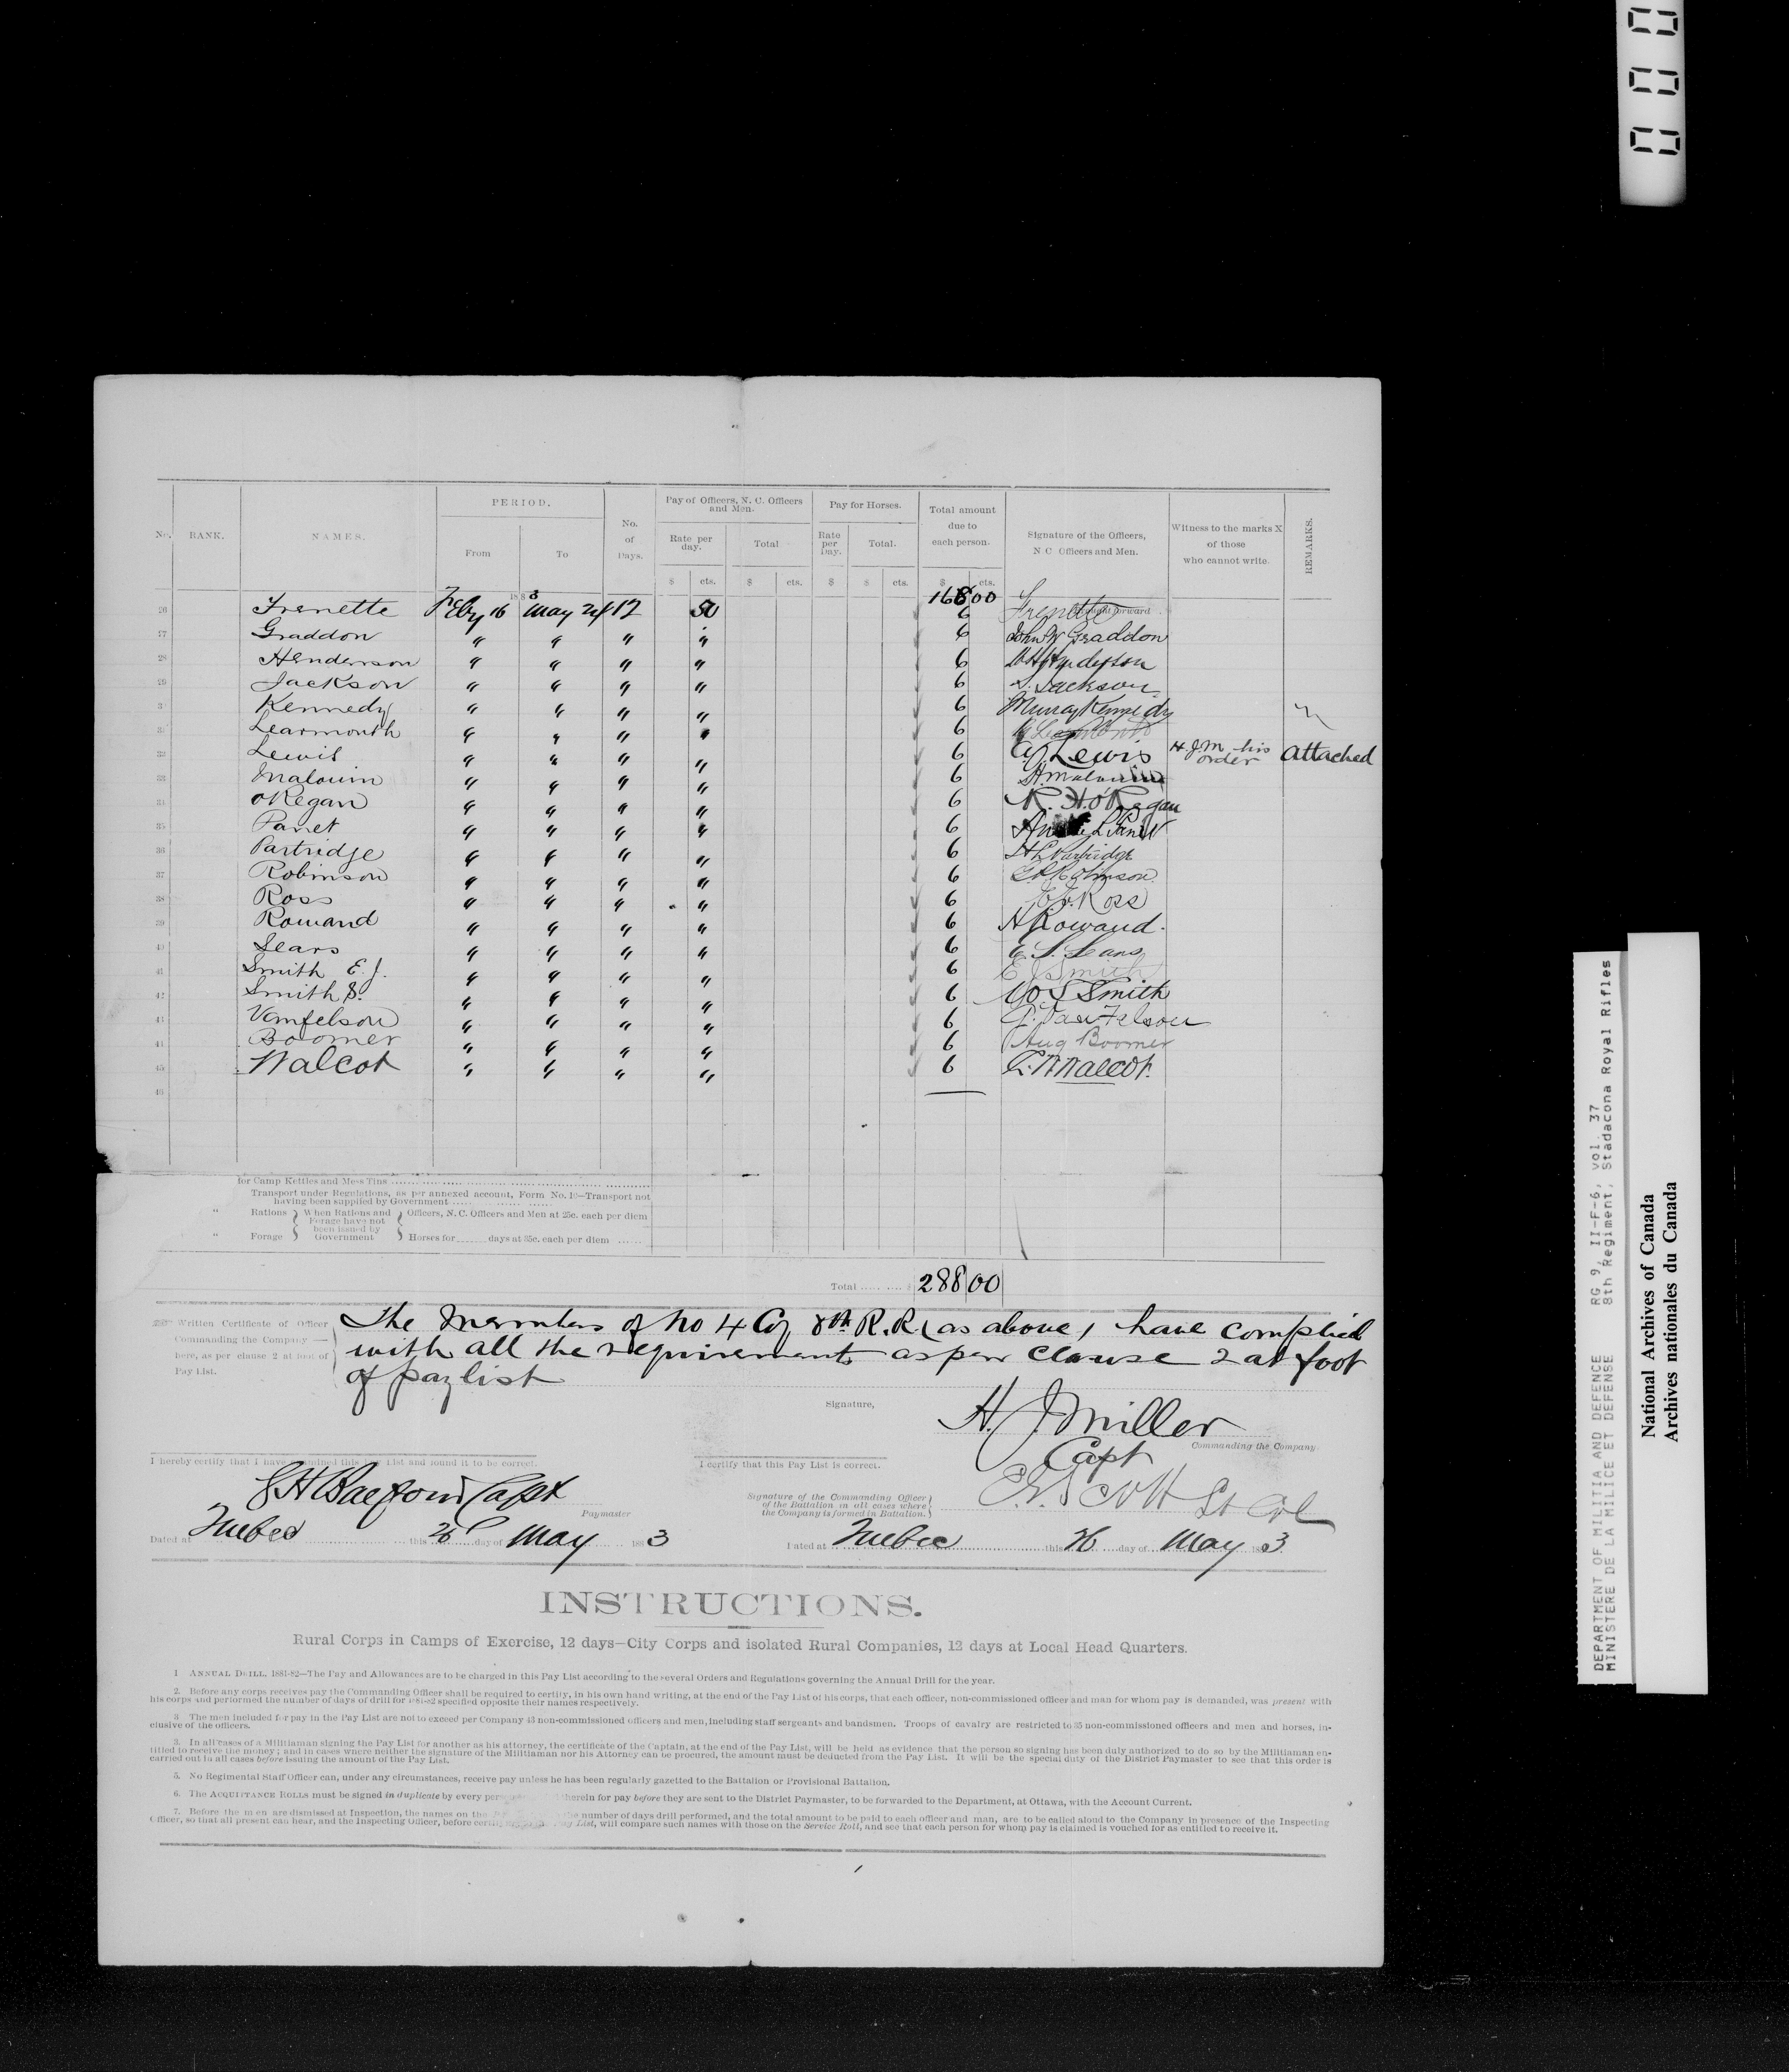 0 0 0
No. RANK. NAMES. PERIOD. From To No. of Days. Pay of Officers, N. C. Officers and Men. Rate per day. Total Pay for Horses. Rate per Day. Total. Total amount due to each person. Signature of the Officers, N C Officers and Men. Witness to the marks X of those who cannot write. REMARKS.
$ cts. $ cts. $ $ cts. $ cts.
188 3 168 00 Brought forward
26 Frenette Feby 16 May 24 12 50 6 Frenette
27 Graddon " " " " 6 John W Graddon
28 Henderson " " " " 6 Henderson
29 Jackson " " " " 6 S. Jackson
3 Kennedy " " " " 6 Murray Kennedy
31 Learmonth " " " " 6 Learmonth
32 Lewis " " " " 6 A J Lewis H.J.M his order attached
33 Malouin " " " " 6 H. Malouin
34 oRegan " " " " 6 R. H. O'Regan
35 Panet " " " " 6 L Panet
36 Partridge " " " " 6 Partridge
37 Robinson " " " " 6 Robinson
38 Ross " " " " 6 Ross
39 Rowand " " " " 6 H Rowand.
40 Sears " " " " 6 E. S. Sears
41 Smith E. J. " " " " 6 E J Smith
42 Smith S. " " " " 6 W S Smith
43 Vanfelson " " " " 6 Van Felson
44 Boomer " " " " 6 Aug Boomer
45 Walcot " " " " 6 Walcot.
46
for Camp Kettles and Mess Tins
Transport under Regulations, as per annexed account, Form No. 10—Transport not
having been supplied by Government
" Rations } When Rations and Forage have not been issued by Government { Officers, N. C. Officers and Men at 25c. each per diem
" Forage } Horses for days at 35c. each per diem
Total 288 00
Written Certificate of Officer Commanding the Company — here, as per clause 2 at foot of Pay List.
The Members of No 4 Coy 8th R. R. (as above) have complied
with all the requirements as per Clause 2 at foot
of paylist
Signature, H. J Miller
Capt Commanding the Company
I hereby certify that I have examined this Pay List and found it to be correct.
I certify that this Pay List is correct.
Capt
Paymaster
Signature of the Commanding Officer
of the Battalion in all cases where
the Company is formed in Battalion.
Scott Lt Col
Dated at Quebec this 26 day of May 188 3
Dated at Quebec this 26 day of May 188 3
INSTRUCTIONS.
Rural Corps in Camps of Exercise, 12 days—City Corps and isolated Rural Companies, 12 days at Local Head Quarters.
1 ANNUAL DRILL, 1881-82—The Pay and Allowances are to be charged in this Pay List according to the several Orders and Regulations governing the Annual Drill for the year.
2. Before any corps receives pay the Commanding Officer shall be required to certify, in his own hand writing, at the end of the Pay List of his corps, that each officer, non-commissioned officer and man for whom pay is demanded, was present with
his corps and performed the number of days of drill for 1881-82 specified opposite their names respectively.
3 The men included for pay in the Pay List are not to exceed per Company 43 non-commissioned officers and men, including staff sergeants and bandsmen. Troops of cavalry are restricted to 35 non-commissioned officers and men and horses, in-
clusive of the officers.
3. In all cases of a Militiaman signing the Pay List for another as his attorney, the certificate of the Captain, at the end of the Pay List, will be held as evidence that the person so signing has been duly authorized to do so by the Militiaman en-
titled to receive the money; and in cases where neither the signature of the Militiaman nor his Attorney can be procured, the amount must be deducted from the Pay List. It will be the special duty of the District Paymaster to see that this order is
carried out in all cases before issuing the amount of the Pay List.
5. No Regimental Staff Officer can, under any circumstances, receive pay unless he has been regularly gazetted to the Battalion or Provisional Battalion.
6. The ACQUITTANCE ROLLS must be signed in duplicate by every therein for pay before they are sent to the District Paymaster, to be forwarded to the Department, at Ottawa, with the Account Current.
7. Before the men are dismissed at Inspection, the names on the number of days drill performed, and the total amount to be paid to each officer and man, are to be called aloud to the Company in presence of the Inspecting
Officer, so that all present can hear, and the Inspecting Officer, before Pay List, will compare such names with those on the Service Roll, and see that each person for whom pay is claimed is vouched for as entitled to receive it.
DEPARTMENT OF MILITIA AND DEFENCE RG 9, II-F-6, vol. 37
MINISTERE DE LA MILICE ET DEFENSE 8th Regiment, Stadacona Royal Rifles
National Archives of Canada
Archives nationales du Canada